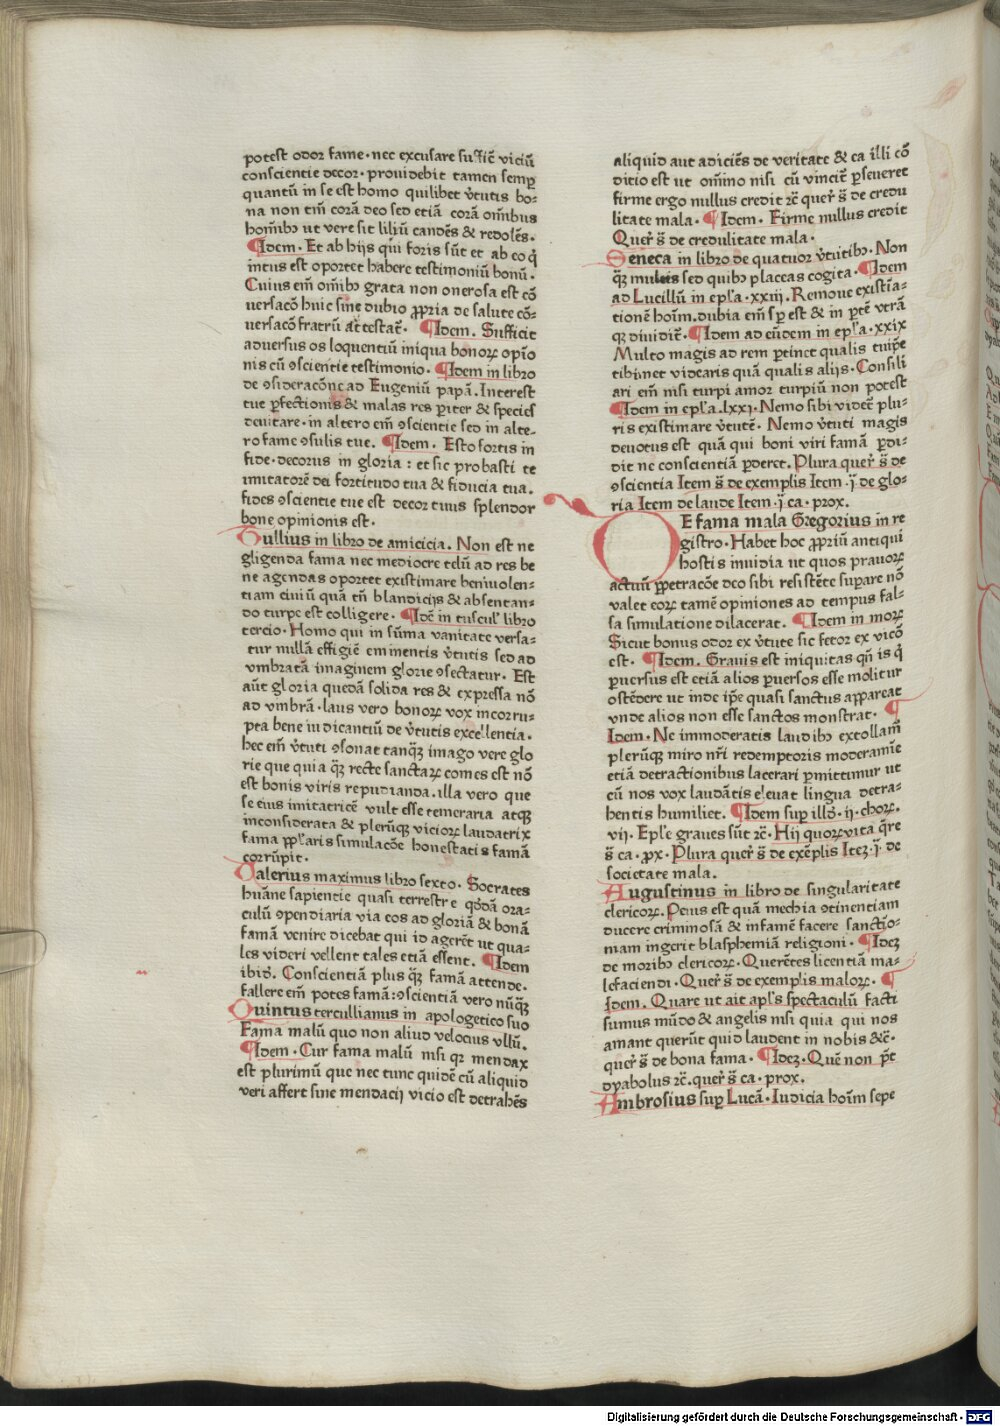 potest odor fame·nec excusare sufficiēt viciū
conscientie decor·prouidebit tamen semp̲
quantū in se est homo quilibet v̓tutis bo-
na non tm̄ corā deo sed etiā corā om̄ibus
hom̄ibꝫ ut vere sit liliū candēs & redolēs.
¶Idem. Et ab hijs qui foris sūt et ab eo q̓
intus est oportet habere testimoniū bonū.
Cuius em̄ om̄ibꝫ grata non onerosa est cō
uersacō huic sine dubio ꝓpria de salute cō-
uersacō fratrū attestat᷑. ¶Idem. Sufficit
aduersus os loquentiū iniqua bonoꝝ opīo
nis cū ꝯscientie testimonio. ¶Idem in libro
de ꝯsideracōne ad Eugeniū papā. Interest
tue ꝑfectionis & malas res pariter & species
deuitare·in altero em̄ ꝯscientie sed in alte-
ro fame ꝯsulis tue. ¶Idem. Esto fortis in
fide·decorus in gloria: et sic probasti te
imitatorē dei fortitudo tua & fiducia tua.
fides ꝯscientie tue est decor tuus splendor
bone opinionis est.
Tullius in libro de amicicia. Non est ne
gligenda fama nec mediocre telū ad res be
ne agendas oportet existimare beniuolen-
tiam ciuiū quā tn̄ blandicijs & absentan-
do turpe est colligere. ¶Idē in tuscul̓ libro
tercio·Homo qui in sūma vanitate versa-
tur nullā effigiē eminentis v̓tutis sed ad
vmbratā imaginem glorie ꝯsectatur. Est
aūt gloria quedā solida res & expressa nō
ad vmbrā·laus vero bonoꝝ vox incorru-
pta bene iudicantiū de v̓tutis excellentia.
hec em̄ v̓tuti ꝯsonat tanqꝫ imago vere glo
rie que quia qꝫ recte sanctaꝝ comes est nō
est bonis viris repudianda·illa vero que
se eius imitatricē vult esse temeraria atqꝫ
inconsiderata & plerūqꝫ vicioꝝ laudatrix
fama ppl̓aris simulacōe honestatis famā
corrūpit.
Valerius maximus libro sexto. Socrates
hūane sapientie quasi terrestre q̓dā ora-
culū ꝯpendiaria via eos ad gloriā & bonā
famā venire dicebat qui id agerēt ut qua-
les videri vellent tales etiā essent. ¶Idem
ibid̓. Conscientiā plus qꝫ famā attende.
fallere em̄ potes famā:ꝯscientiā vero nūqꝫ
Quintus tercullianus in apologetico suo
Fama malū quo non aliud velocius vllū.
¶Idem. Cur fama malū nisi qꝫ mendax
est plurimū que nec tunc quidē cū aliquid
veri affert sine mendacij vicio est detrahēs
aliquid aut adiciēs de veritate & ea illi cō
ditio est ut om̄ino nisi cū vincit̄ ꝑseueret
firme ergo nullus credit ꝛc̄ quer̓ s̄ de credu
litate mala. ¶Idem. Firme nullus credit
Quer̓ s̄ de credulitate mala.
Seneca in libro de quatuor v̓tutibꝫ. Non
qꝫ multis sed quibꝫ placeas cogita. ¶Idem
ad Lucillū in epl̓a·xxiij. Remoue existīa-
tionē hoīm. dubia em̄ sp̲ est & in ꝑtē vtrā
qꝫ diuidit᷑. ¶Idem ad eūdem in epl̓a·xxix
Multo magis ad rem ꝑtinet qualis tuip̄e
tibi net videaris quā qualis alijs·Consili
ari em̄ nisi turpi amor turpiū non potest
¶Idem in epl̓a·lxxj. Nemo sibi videt᷑ plu-
ris existimare v̓tutē. Nemo v̓tuti magis
deuotus est quā qui boni viri famā ꝑdi-
dit ne conscientiā ꝑderet. Plura quer̓ s̄ de
ꝯscientia Item s̄ de exemplis Item·ij̄ de glo-
ria Item de laude Item·ij̄ ca·prox.
DE fama mala Gregorius in re
gistro·Habet hoc ꝓpriū antiqui
hostis inuidia ut quos prauoꝝ
actuū ꝑpetracōe deo sibi resistēte supare nō
valet eoꝝ tamē opiniones ad tempus fal-
sa simulatione dilacerat. ¶Idem in moꝝ
Sicut bonus odor ex v̓tute sic fetor ex vicō
est. ¶Idem. Grauis est iniquitas qn̄ is q̓
ꝑuersus est etiā alios ꝑuersos esse molitur
ostēdere ut inde ip̄e quasi sanctus appareat
vnde alios non esse sanctos monstrat. ¶
Idem. Ne immoderatis laudibꝫ extollam̄
plerūqꝫ miro nr̄i redemptoris moderamīe
etiā detractionibus lacerari ꝑmittimur ut
cū nos vox laudātis eleuat lingua detra-
hentis humiliet. ¶Idem sup̲ illd̓·ij·choꝝ.
vij. Epl̓e graues sūt ꝛc̄·Hij quoꝝ vita q̄re
s̄ ca·ꝓx·Plura quer̓ s̄ de exēplis Iteꝫ·ij̄·de
societate mala.
Augustinus in libro de singularitate
clericoꝝ. Peius est quā mechia ꝯtinentiam
ducere criminosā & infamē facere sanctīo-
niam ingerit blasphemiā religioni·¶Ideꝫ
de moribꝫ clericoꝝ·Querētes licentiā ma-
lefaciendi·Quer̓ s̄ de exemplis maloꝝ. ¶
Idem. Quare ut ait apl̓s spectaculū facti
sumus mūdo & angelis nisi quia qui nos
amant querūt quid laudent in nobis &c̄·
quer̓ s̄ de bona fama. ¶Ideꝫ·Quē non p̄t
dyabolus ꝛc̄·quer̓ s̄ ca·prox.
Ambrosius sup̲ Lucā·Iudicia hoīm sepe
Digitalisierung gefördert durch die Deutsche Forschungsgemeinschaft · DFG